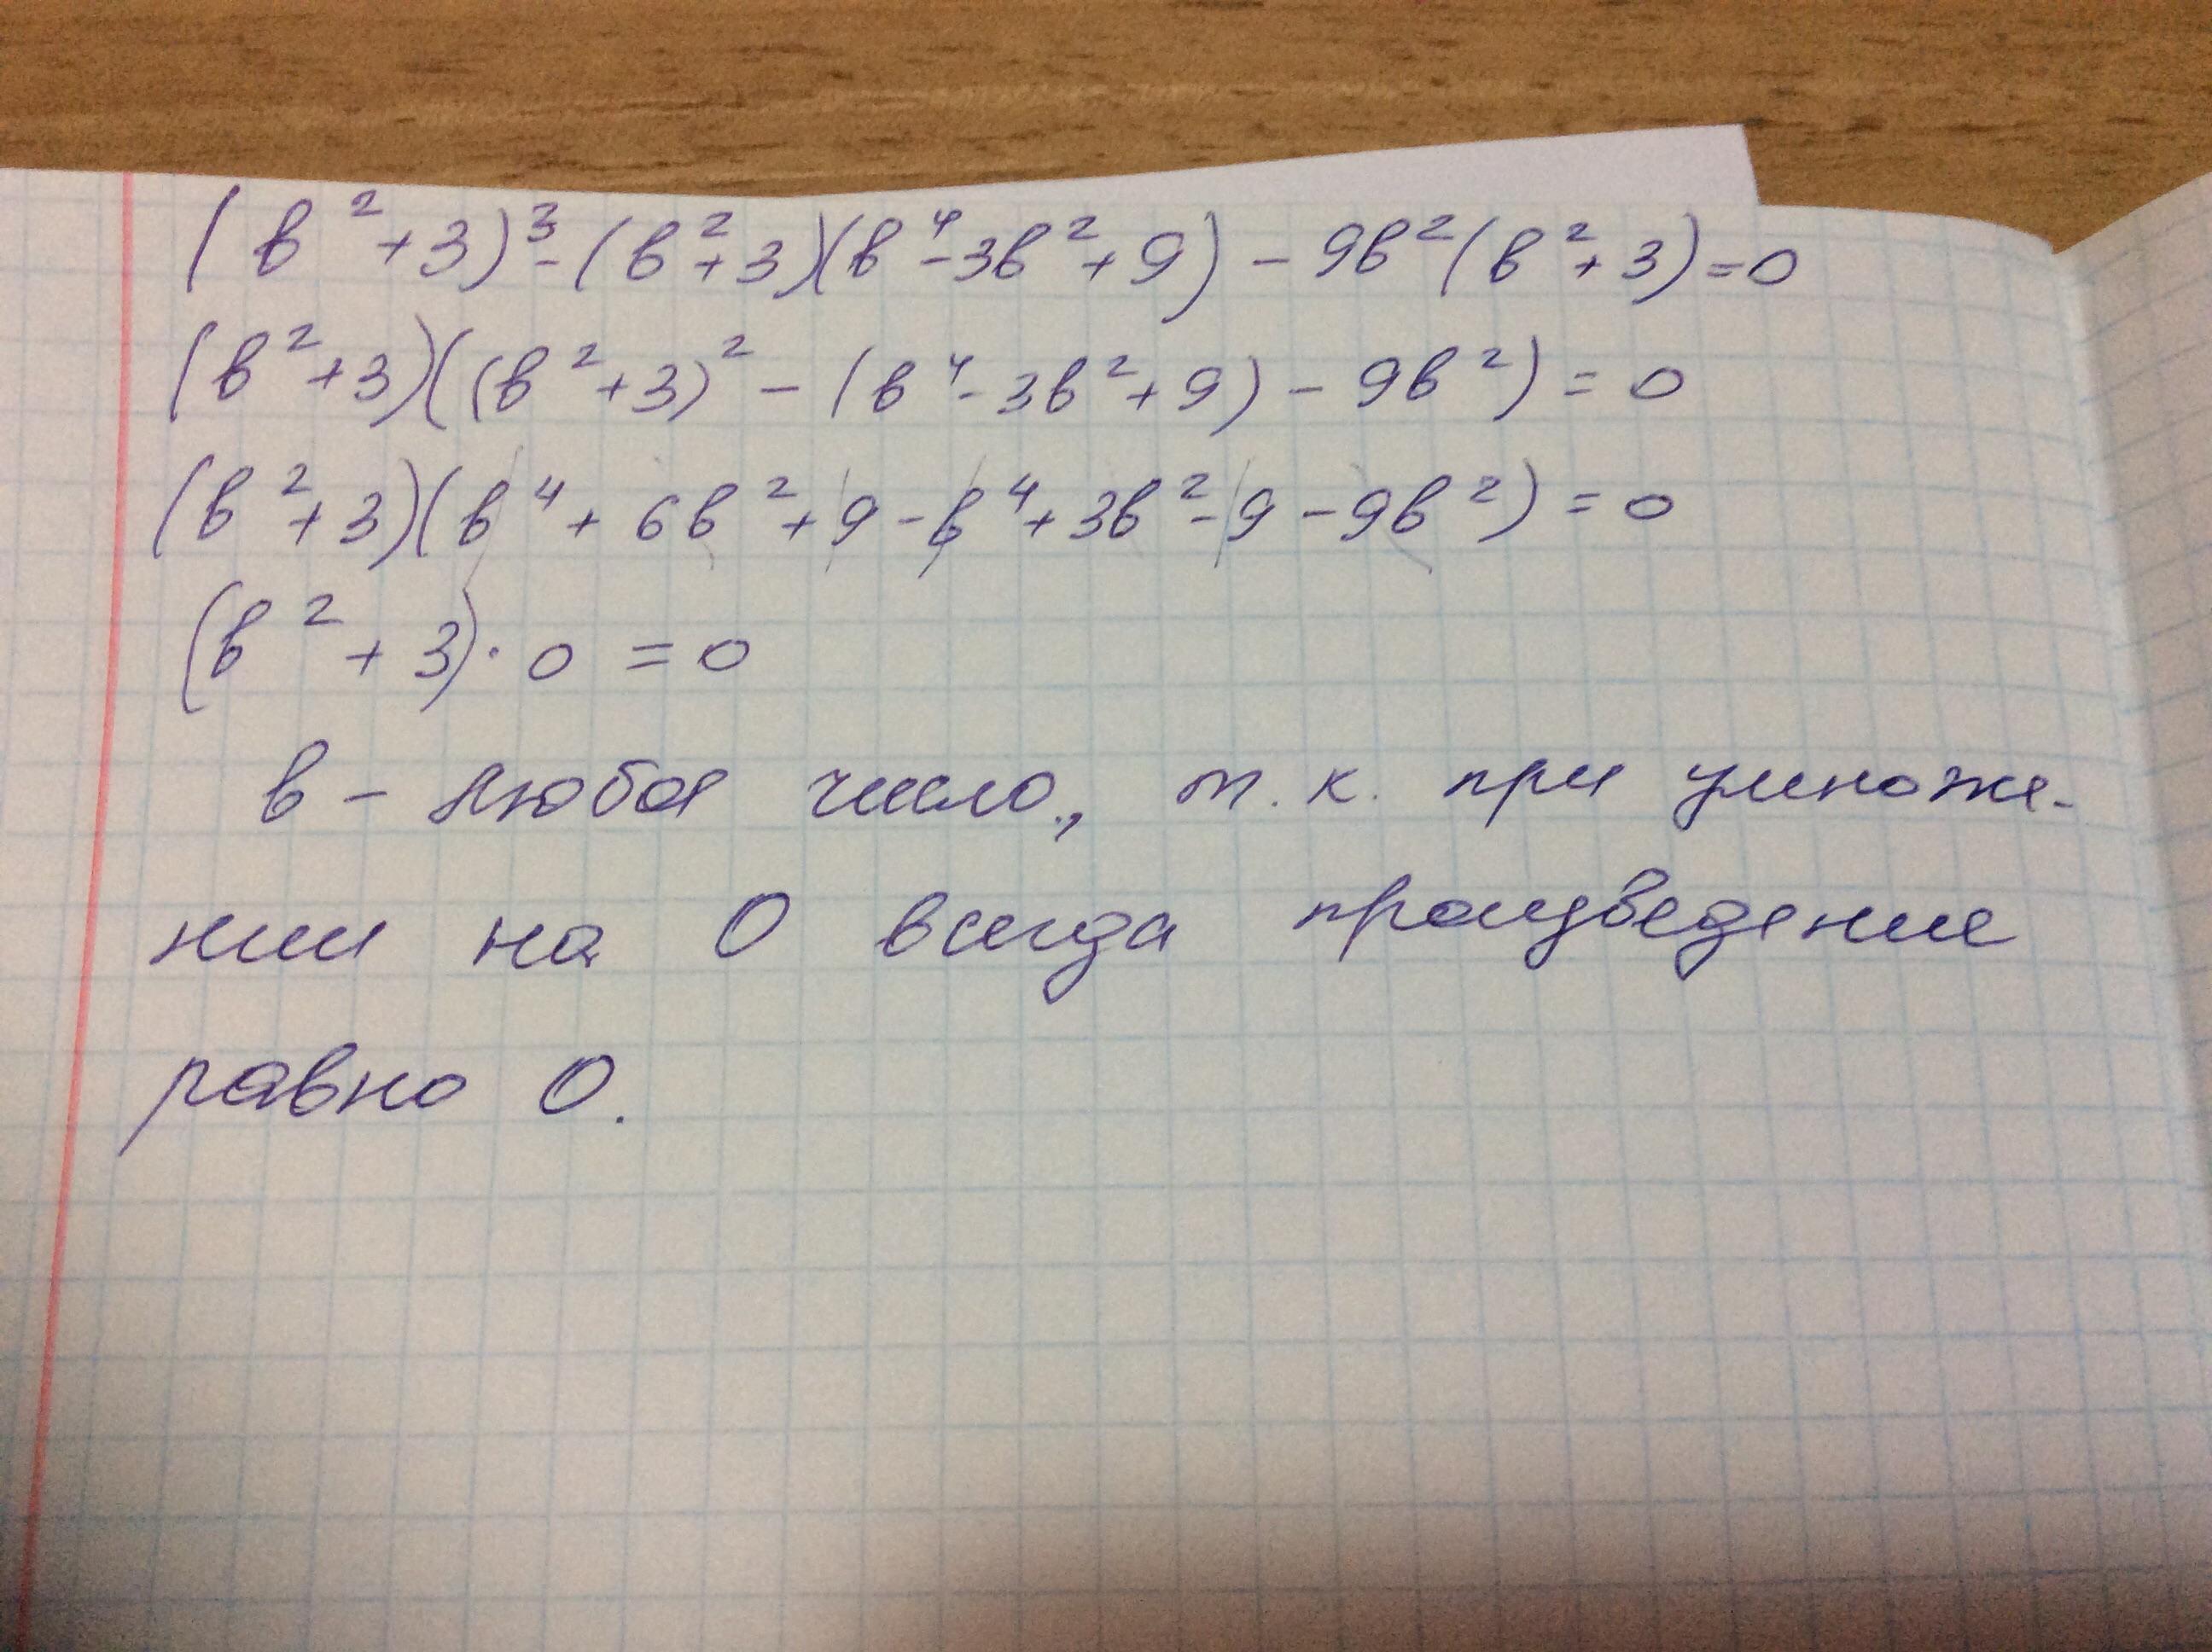 (в² + 3)³ - (в² + 3)(в⁴ - 3в² + 9) - 9в²(в² + 3) = 0
(в² + 3)((в² + 3)² - (в⁴ - 3в² + 9) - 9в²) = 0
(в² + 3)(в⁴ + 6в² + 9 - в⁴ + 3в² - 9 - 9в²) = 0
(в² + 3) · 0 = 0
в - любое число, т. к. при умноже-
нии на 0 всегда произведение
равно 0.